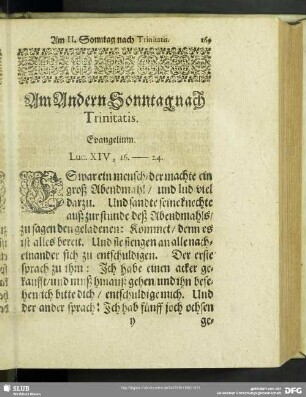 Am II. Sonntag nach Trinitatis.
Am Andern Sonntag nach
Trinitatis.
Evangelium.
Luc. XIV, 16. — 24.
ES war ein mensch/ der machte ein
groß Abendmahl/ und lud viel
darzu. Und sandte seine knechte
auß zur stunde deß Abendmahls/
zu sagen den geladenen: Kommet/ denn es
ist alles bereit. Und sie fiengen an alle nach-
einander sich zu entschuldigen. Der erste
sprach zu ihm: Ich habe einen acker ge-
kaufft/ und muß hinauß gehen und ihn bese-
hen/ ich bitte dich/ entschuldige mich. Und
der ander sprach: Ich hab fünff joch ochsen
y ge-
SLUB